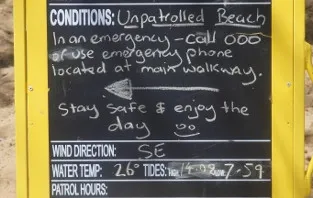 CONDITIONS: Unpatrolled Beach
In an emergency - call 000
or use emergency phone
located at main walkway.
Stay safe & enjoy the
day
WIND DIRECTION: SE
WATER TEMP: 26° TIDES: HIGH 14:02 LOW 7:59
PATROL HOURS: